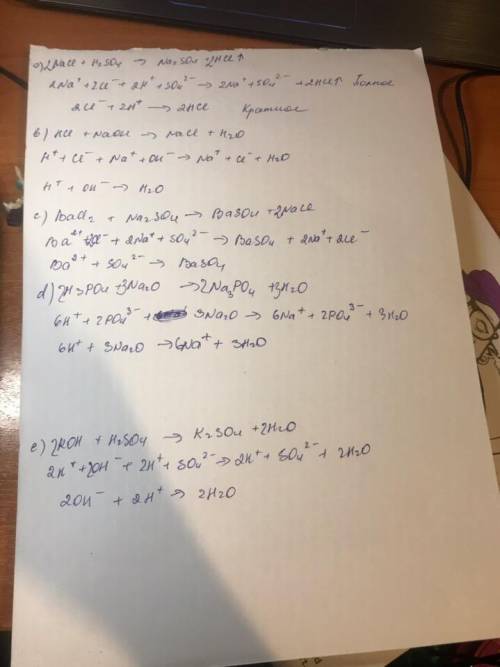 a) 2NaCl + H₂SO₄ → Na₂SO₄ + 2HCl↑
2Na⁺ + 2Cl⁻ + 2H⁺ + SO₄²⁻ → 2Na⁺ + SO₄²⁻ + 2HCl↑ Полное
2Cl⁻ + 2H⁺ → 2HCl Краткое
b) HCl + NaOH → NaCl + H₂O
H⁺ + Cl⁻ + Na⁺ + OH⁻ → Na⁺ + Cl⁻ + H₂O
H⁺ + OH⁻ → H₂O
c) BaCl₂ + Na₂SO₄ → BaSO₄ + 2NaCl
Ba²⁺ + 2Cl⁻ + 2Na⁺ + SO₄²⁻ → BaSO₄ + 2Na⁺ + 2Cl⁻
Ba²⁺ + SO₄²⁻ → BaSO₄
d) 2H₃PO₄ + 3Na₂O → 2Na₃PO₄ + 3H₂O
6H⁺ + 2PO₄³⁻ + 3Na₂O → 6Na⁺ + 2PO₄³⁻ + 3H₂O
6H⁺ + 3Na₂O → 6Na⁺ + 3H₂O
e) 2KOH + H₂SO₄ → K₂SO₄ + 2H₂O
2K⁺ + 2OH⁻ + 2H⁺ + SO₄²⁻ → 2K⁺ + SO₄²⁻ + 2H₂O
2OH⁻ + 2H⁺ → 2H₂O